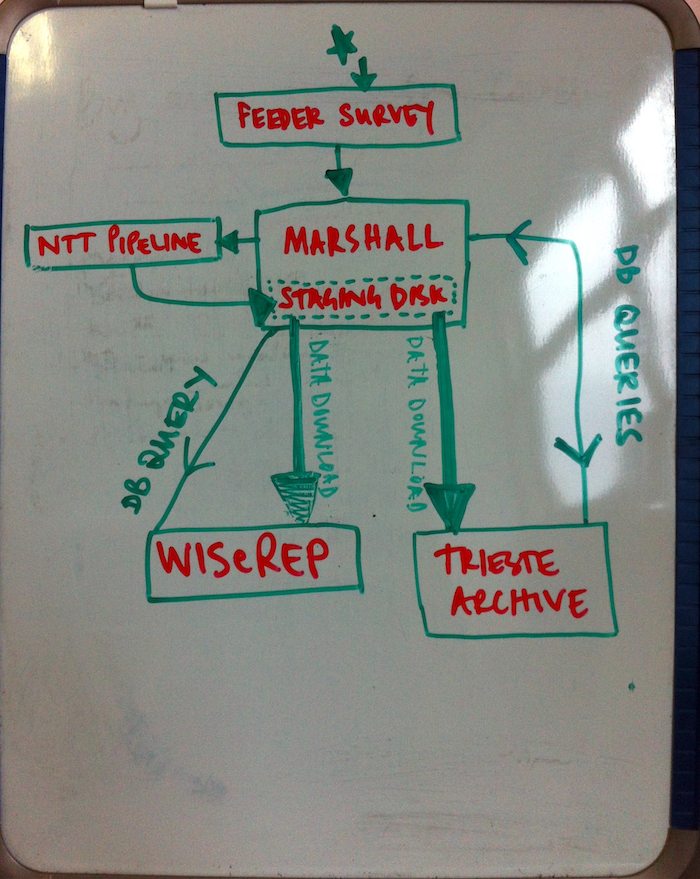 FEEDER SURVEY
NTT PIPELINE
MARSHALL
STAGING DISK
DB QUERY
DATA DOWNLOAD
DATA DOWNLOAD
Db QUERIES
WISeREP
TRIESTE
ARCHIVE